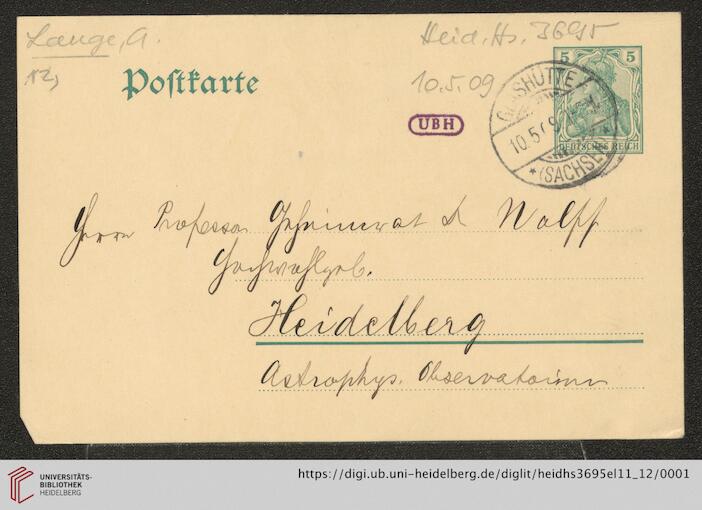 Lange, A.
12)
Heid. Hs. 3695
10.5.09
Postkarte
UBH
5 5
DEUTSCHES REICH
GLASHÜTTE
10.5.09
* (SACHSEN) *
Herrn Professor Geheimrat Dr Wolff
Hochwohlgeb.
Heidelberg
Astrophys. Observatorium
UNIVERSITÄTS-
BIBLIOTHEK
HEIDELBERG
https://digi.ub.uni-heidelberg.de/diglit/heidhs3695el11_12/0001